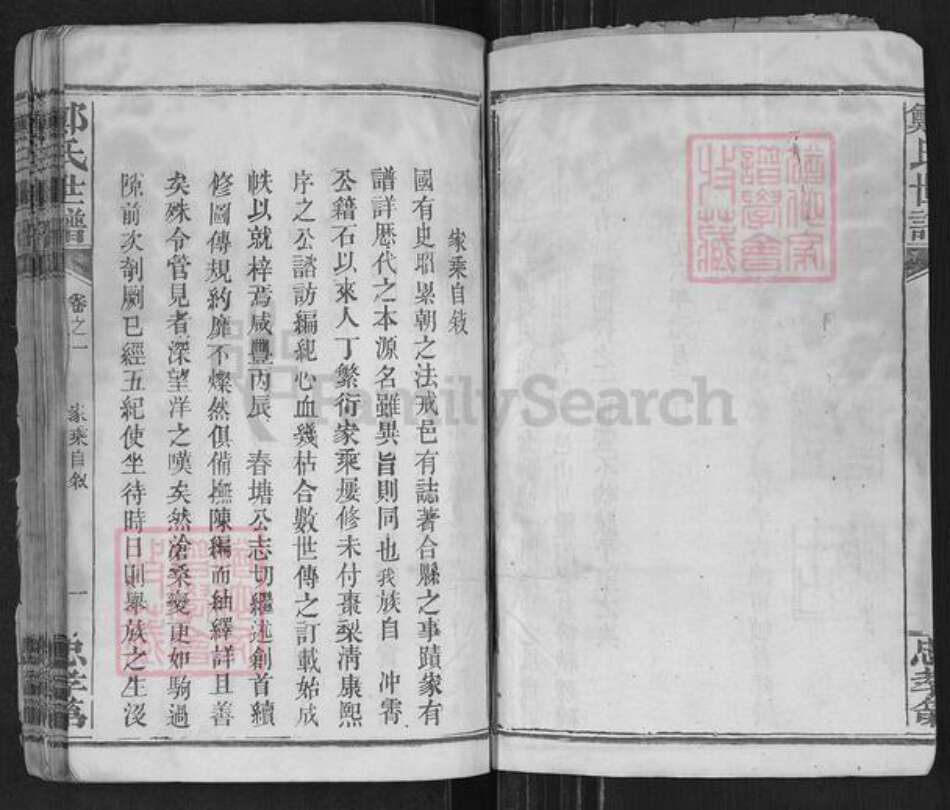 鄭氏世譜
忠孝第
家乘自敘
國有史昭累朝之法戒邑有誌著合縣之事蹟家有
譜詳歷代之本源名雖異旨則同也我族自 冲霄
公籍石以來人丁繁衍家乘屢修未付棗梨清康熙
序之公諮訪編紀心血幾枯合數世傳之訂載始成
帙以就梓焉咸豐丙辰 春塘公志切繼述創首續
修圖傳規約靡不燦然俱備撫陳編而紬繹詳且善
矣殊令管見者深望洋之嘆矣然滄桑變更如駒過
隙前次剞劂已經五紀使坐待時日則舉族之生沒
鄭氏世譜
卷之一
家乘自敘
一
忠孝第
FamilySearch